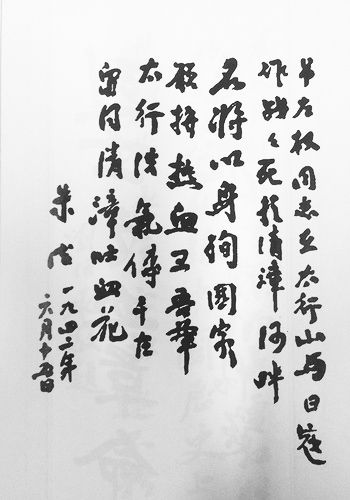 吊左权同志在太行山与日寇
作战々死於清漳河畔
名将以身殉國家
愿拼热血卫吾華
太行浩氣傳千古
留得清漳吐血花
朱德 一九四二年
六月十五日